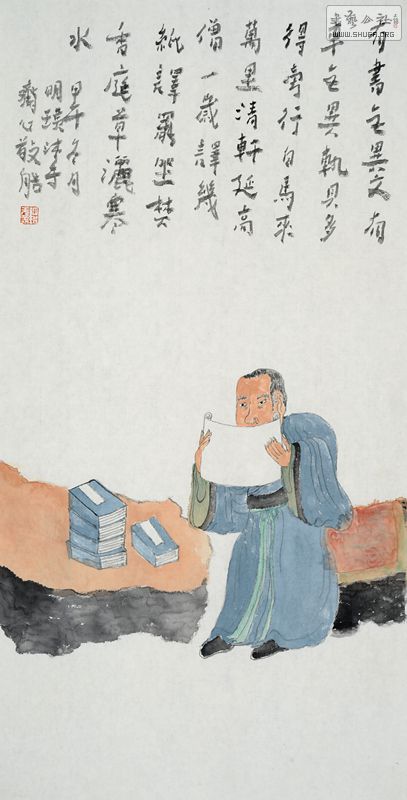 書藝公社
WWW.SHUFA.ORG
有書異文有
異執貝多
得旁行白馬來
萬里清軒延高
僧一歲譯幾
紙譯罷坐焚
香庭草灑寒
水
甲午冬月
明沐手
齋心敬